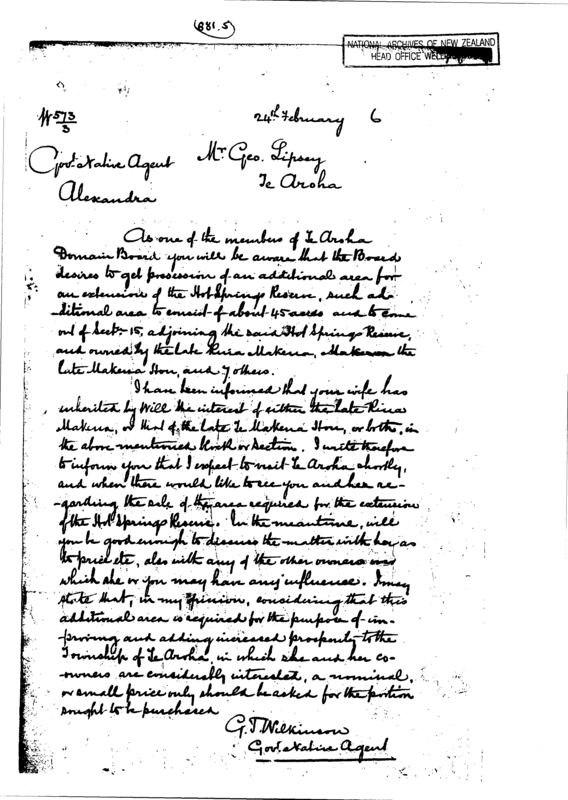 (881.5)
NATIONAL ARCHIVES OF NEW ZEALAND
HEAD OFFICE
N 573/3
24th February 6
Govt. Native Agent
Mr Geo. Lipsey
Alexandra
Te Aroha
As one of the members of Te Aroha
Domain Board you will be aware that the Board
desires to get possession of an additional area for
an extension of the Hot Springs Reserve, such ad-
-ditional area to consist of about 45 acres and to come
out of Sect: 15, adjoining the said Hot Springs Reserve,
and owned by the late Rina Makena, the
late Makena Hou, and 7 others.
I have been informed that your wife has
inherited by Will the interest of either the late Rina
Makena, or that of the late Te Makena Hou, or both, in
the above mentioned block or Section. I write therefore
to inform you that I expect to visit Te Aroha shortly,
and when there would like to see you and her re-
-garding the sale of the area required for the extension
of the Hot Springs Reserve. In the meantime, will
you be good enough to discuss the matter with her as
to price etc, also with any of the other owners over
which she or you may have any influence. I may
state that, in my opinion, considering that this
additional area is required for the purpose of im-
-proving and adding increased prosperity to the
Township of Te Aroha, in which she and her co-
owners are considerably interested, a nominal,
or small price only should be asked for the portion
sought to be purchased
G. T. Wilkinson
Govt. Native Agent